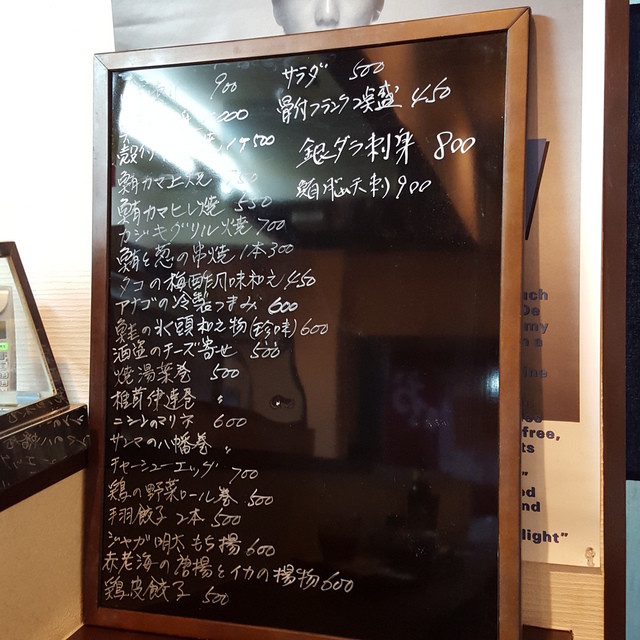 900
000
殻付 1ヶ500
鮪カマ上焼 50
鮪カマヒレ焼 550
カジキグリル焼 700
鮪と葱の串焼 1本300
タコの梅酢風味和え 450
アナゴの冷製つまみ 600
鮭の氷頭和え物(珍味) 600
酒盗のチーズ寄せ 500
焼湯葉巻 500
椎茸伊達巻 〃
ニシンのマリネ 600
サンマの八幡巻 〃
チャーシューエッグ 700
鶏の野菜ロール巻 500
手羽餃子 2本 500
ジャガ明太もち揚 600
赤老海の唐揚とイカの揚物 600
鶏皮餃子 500
サラダ 500
骨付フランク 450
銀ダラ刺身 800
鮪脳天刺 900
uch
De
my
n a
ine
free,
ts
ed
nd
light"